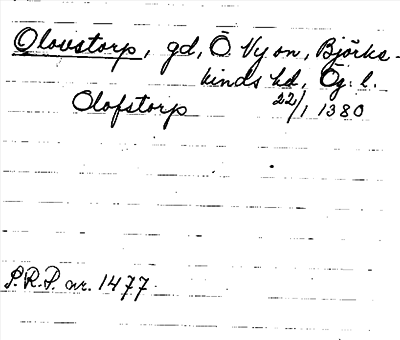 Olovstorp, gd, Ö Ny sn, Björke-
kinds hd, Ög. l.
Olofstorp 22/1 1380
S.R.P. nr. 1477.